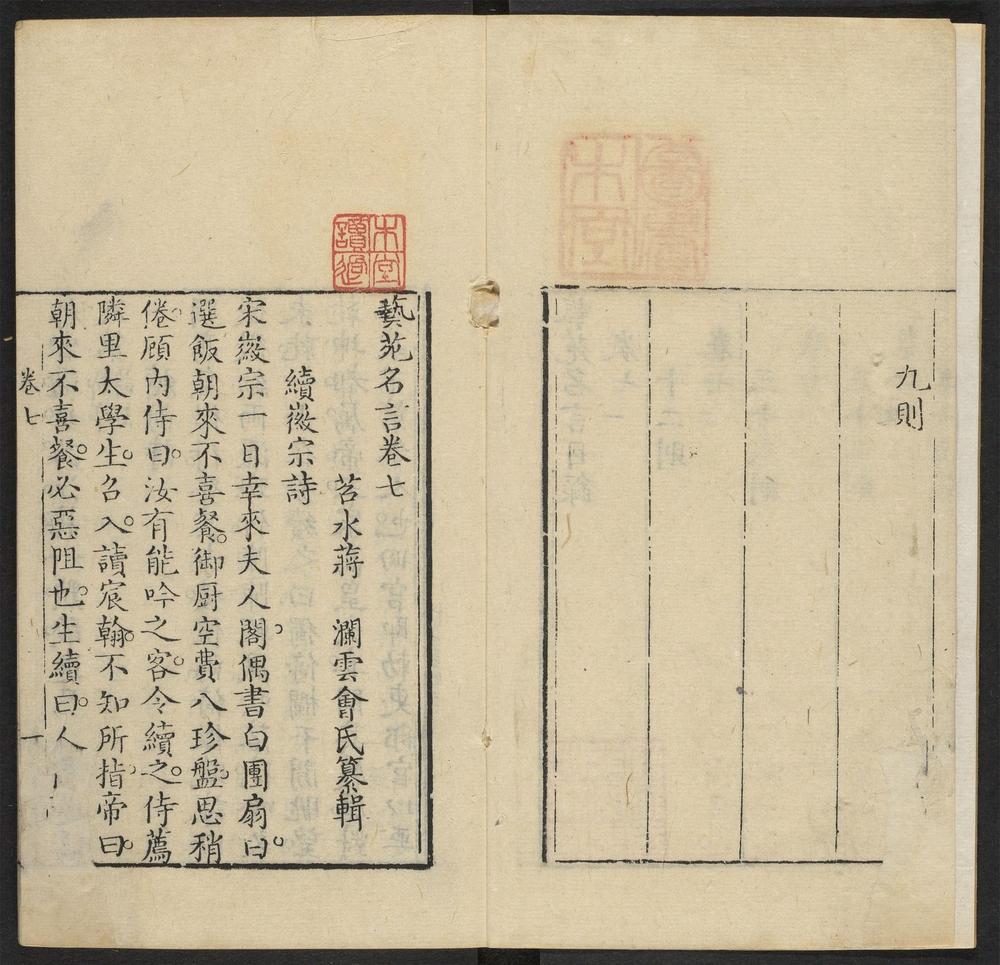 九則
木堂讀過
藝苑名言卷七
苕水蔣瀾雲會氏纂輯
續徽宗詩
宋徽宗一日幸來夫人閣偶書白團扇曰
選飯朝來不喜餐御厨空費八珍盤思稍
倦顧內侍曰汝有能吟之客令續之侍薦
隣里太學生名入讀宸翰不知所指帝曰
朝來不喜餐必惡阻也生續曰人
卷七
一